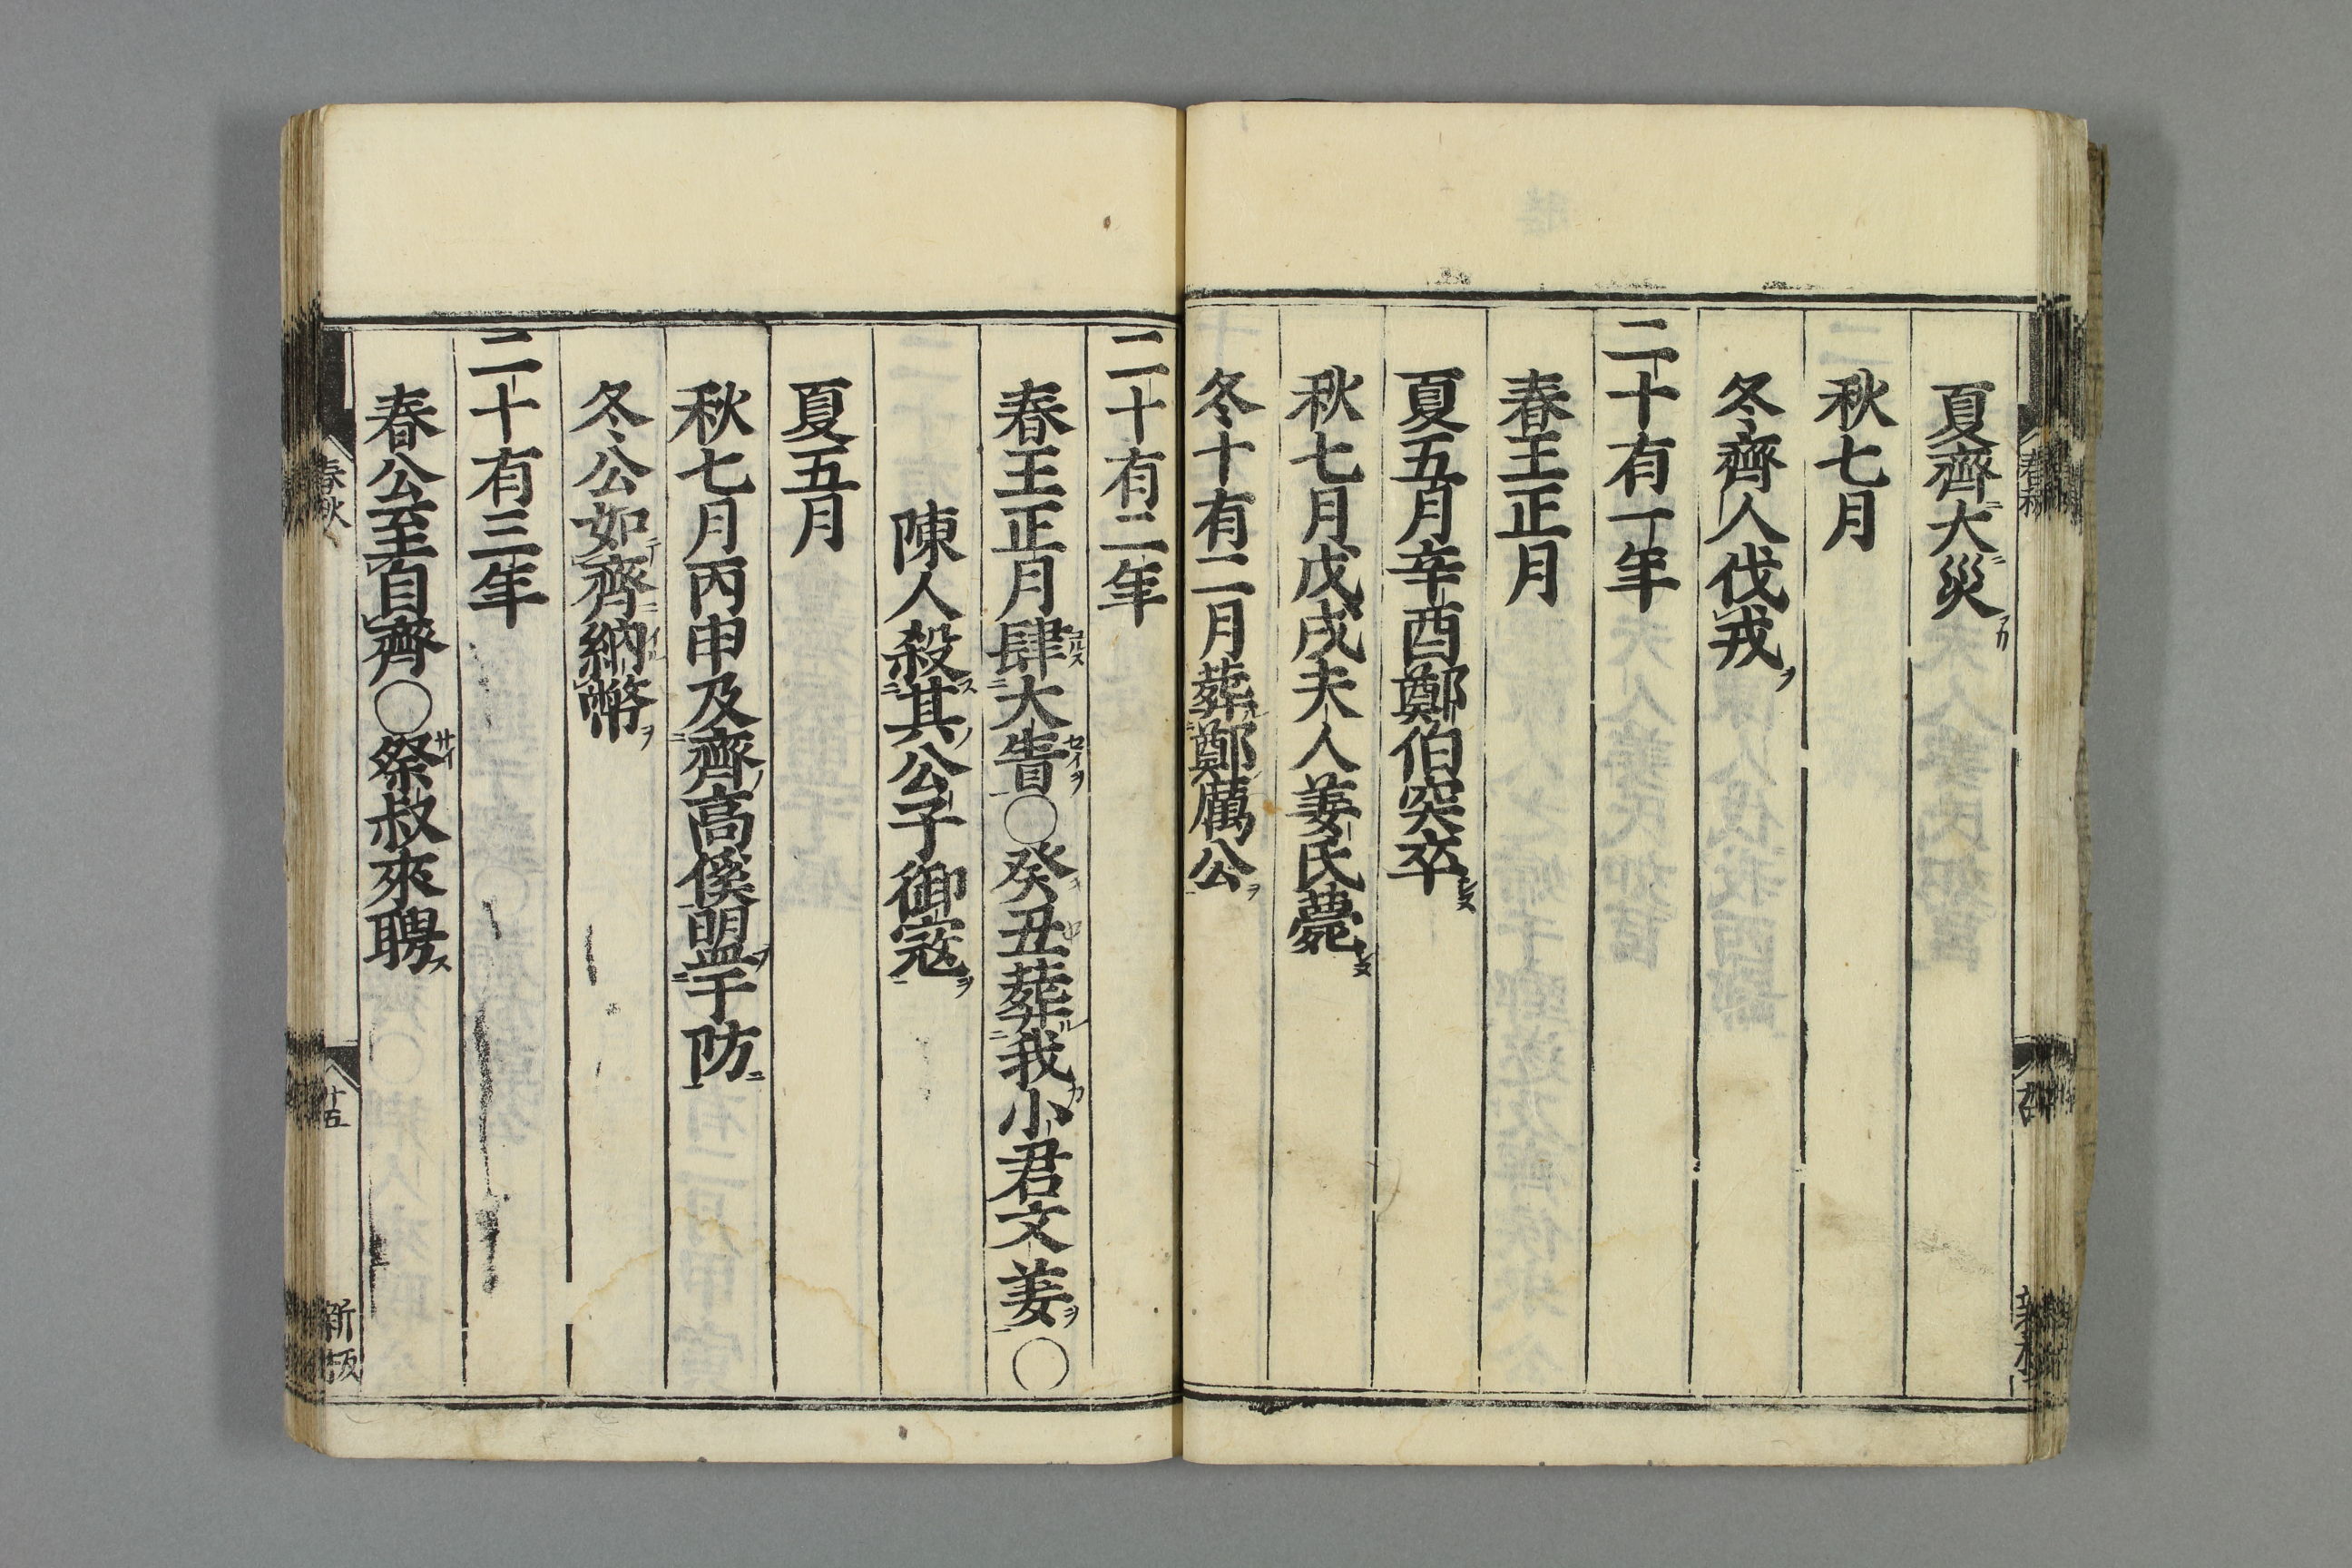 夏齊大災
秋七月
冬齊人伐戎
二十有一年
春王正月
夏五月辛酉鄭伯突卒
秋七月戊戌夫人姜氏薨
冬十有二月葬鄭厲公
二十有二年
春王正月肆大眚〇癸丑葬我小君文姜〇
陳人殺其公子御寇
夏五月
秋七月丙申及齊高傒盟于防
冬公如齊納幣
二十有三年
春公至自齊〇祭叔來聘
春秋
廿五
新板